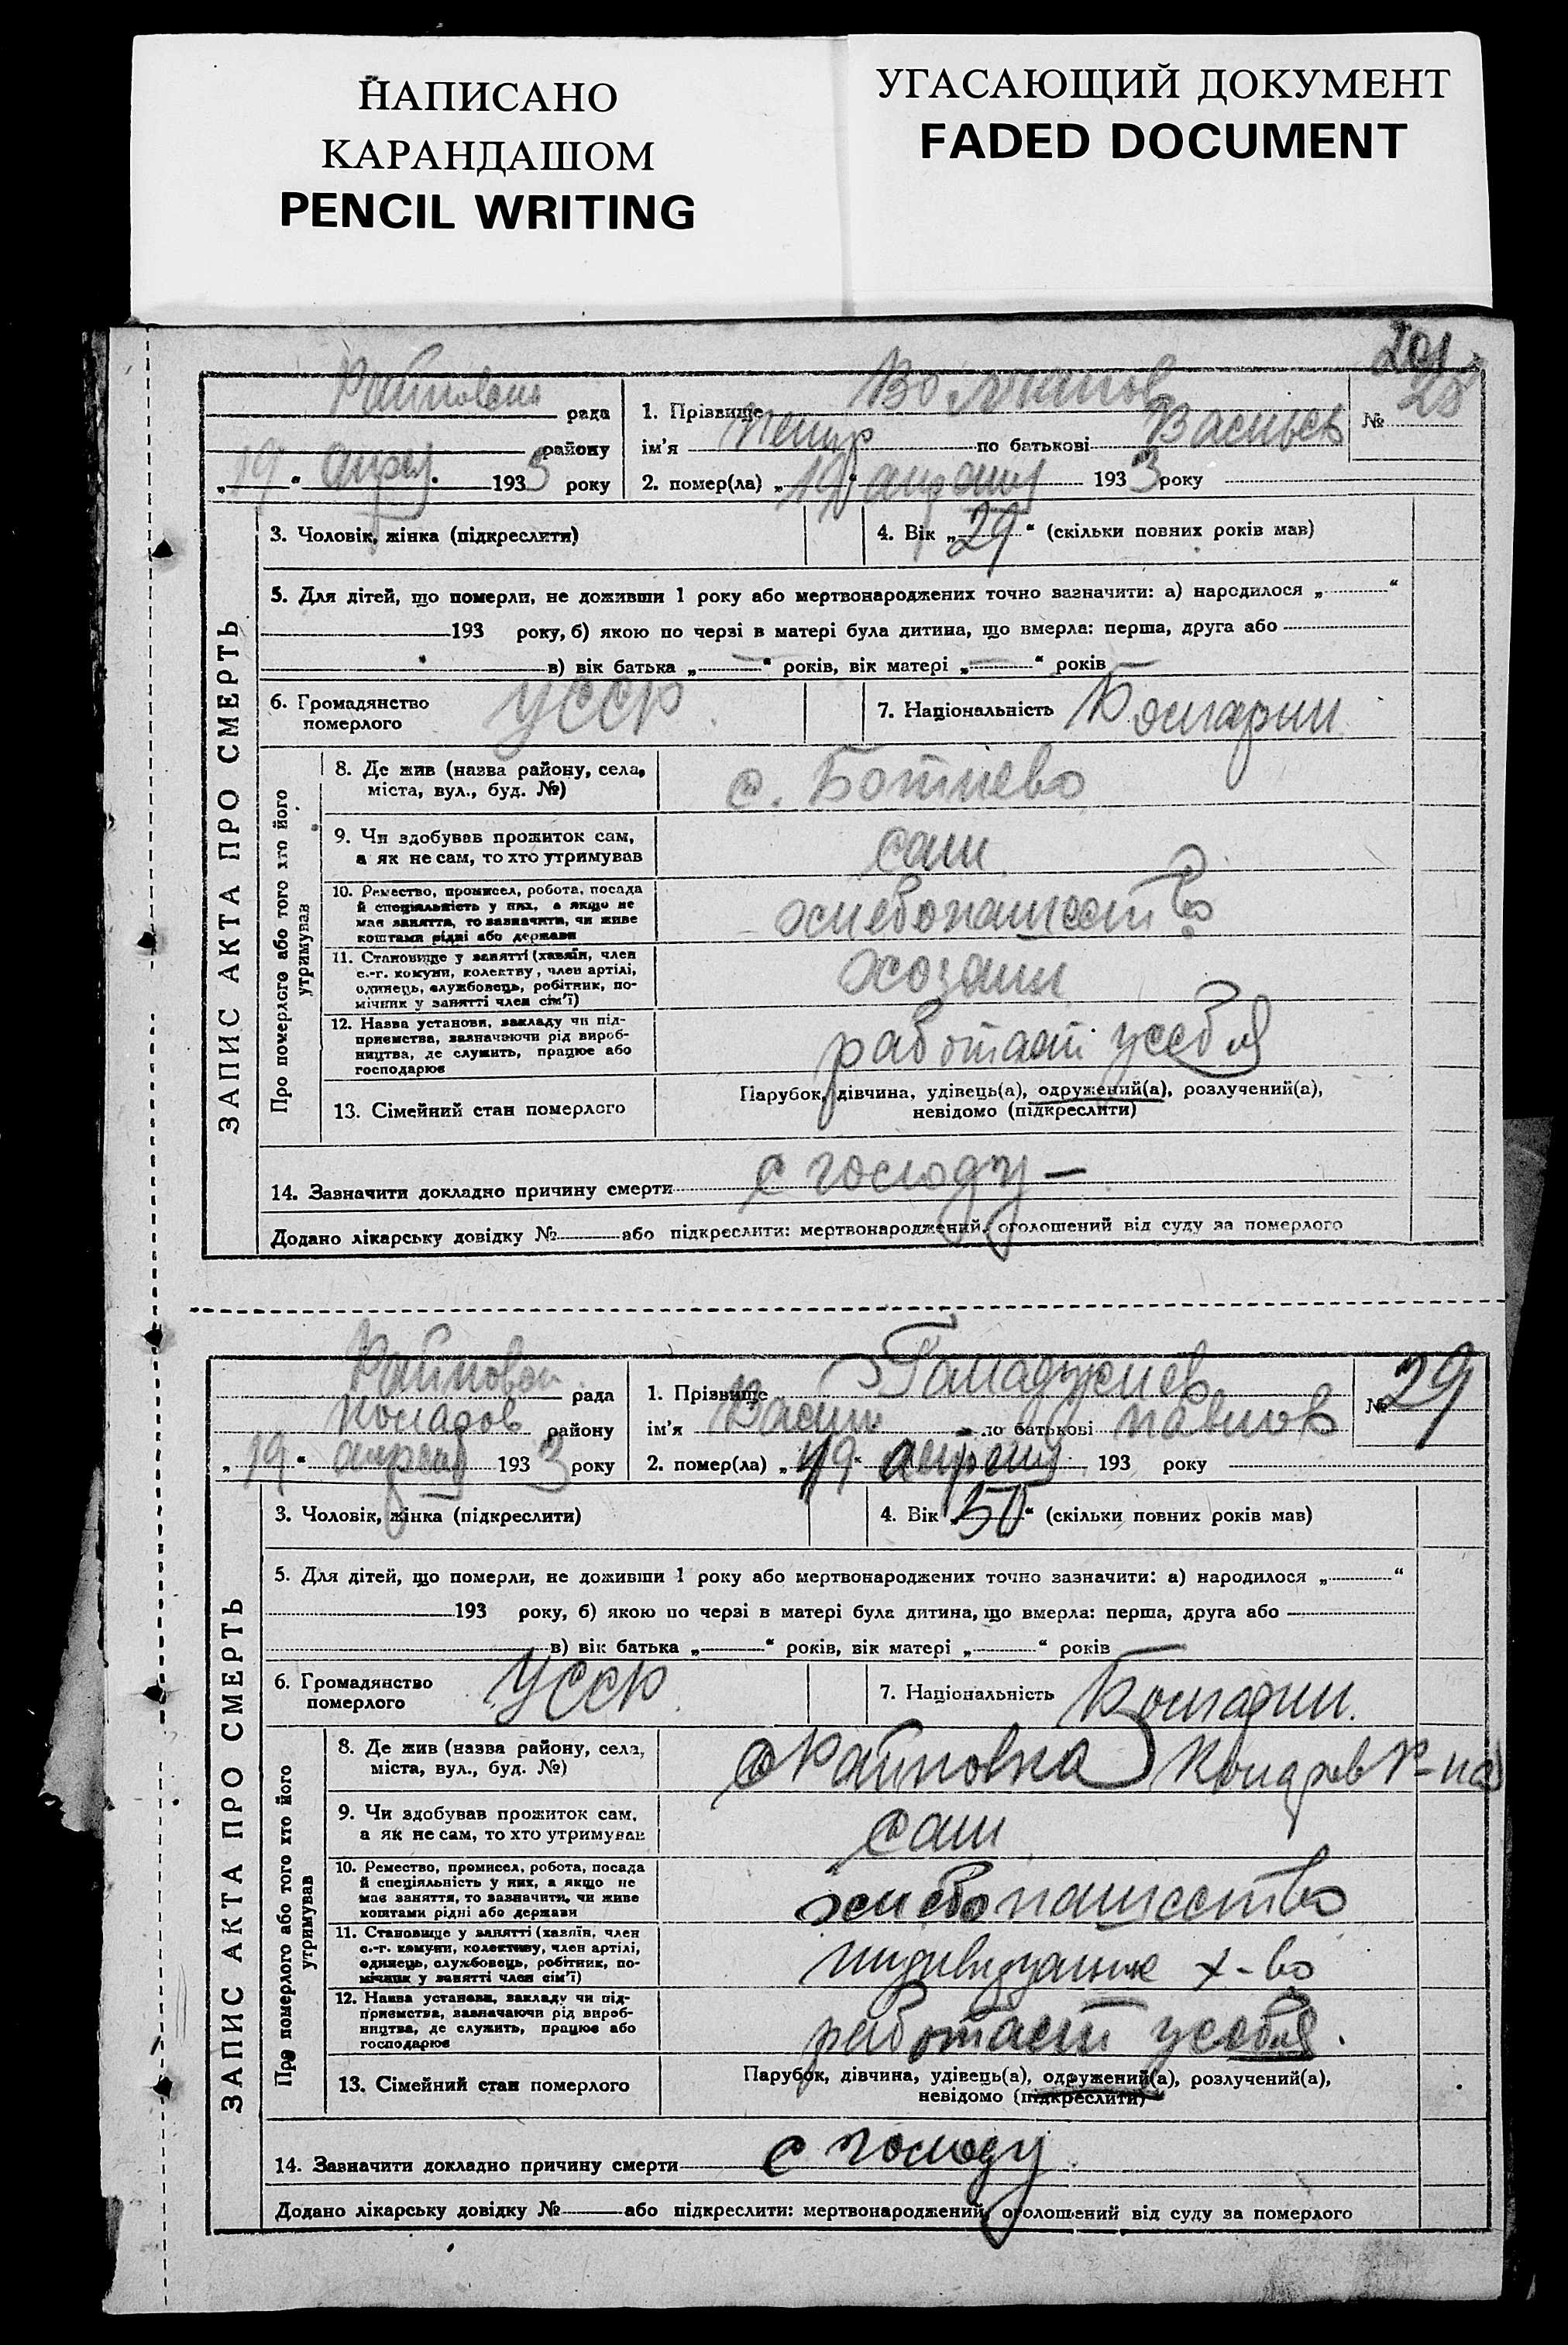 НАПИСАНО
КАРАНДАШОМ
PENCIL WRITING
УГАСАЮЩИЙ ДОКУМЕНТ
FADED DOCUMENT
201
рада 1. Прізвище № 28
району ім'я Петр по батькові Васильев
„19“ апрел. 1933 року 2. помер(ла) „19“ апреля 1933 року
ЗАПИС АКТА ПРО СМЕРТЬ
3. Чоловік, жінка (підкреслити) 4. Вік „29“ (скільки повних років мав)
5. Для дітей, що померли, не доживши 1 року або мертвонароджених точно зазначити: а) народилося „ “
193 року, б) якою по черзі в матері була дитина, що вмерла: перша, друга або
в) вік батька „ “ років, вік матері „ “ років
6. Громадянство
померлого УССР 7. Національність Болгарин
Про померлого або того хто його
утримував
8. Де жив (назва району, села,
міста, вул., буд. №) с. Ботиево
9. Чи здобував прожиток сам,
а як не сам, то хто утримував сам
10. Ремество, промисел, робота, посада
й спеціяльність у них, а якщо не
має заняття, то зазначити, чи живе
коштами рідні або держави хлебопашество
11. Становище у занятті (хазяїн, член
с.-г. комуни, колективу, член артілі,
одинець, службовець, робітник, по-
мічник у занятті член сім'ї) хозяин
12. Назва установи, закладу чи під-
приємства, зазначаючи рід вироб-
ництва, де служить, працює або
господарює работает усебя
13. Сімейний стан померлого Парубок, дівчина, удівець(а), одружений(а), розлучений(а),
невідомо (підкреслити)
14. Зазначити докладно причину смерти с голоду —
Додано лікарську довідку № або підкреслити: мертвонароджений, оголошений від суду за померлого
рада 1. Прізвище № 29
району ім'я Васил по батькові Павлов
„19“ апреля 1933 року 2. помер(ла) „19“ апреля 193 року
ЗАПИС АКТА ПРО СМЕРТЬ
3. Чоловік, жінка (підкреслити) 4. Вік „50“ (скільки повних років мав)
5. Для дітей, що померли, не доживши 1 року або мертвонароджених точно зазначити: а) народилося „ “
193 року, б) якою по черзі в матері була дитина, що вмерла: перша, друга або
в) вік батька „ “ років, вік матері „ “ років
6. Громадянство
померлого УССР 7. Національність Болгарин.
Про померлого або того хто його
утримував
8. Де жив (назва району, села,
міста, вул., буд. №) с Райновка
9. Чи здобував прожиток сам,
а як не сам, то хто утримував сам
10. Ремество, промисел, робота, посада
й спеціяльність у них, а якщо не
має заняття, то зазначити, чи живе
коштами рідні або держави хлебопашество
11. Становище у занятті (хазяїн, член
с.-г. комуни, колективу, член артілі,
одинець, службовець, робітник, по-
мічник у занятті член сім'ї) х-во
12. Назва установи, закладу чи під-
приємства, зазначаючи рід вироб-
ництва, де служить, працює або
господарює работает усебя.
13. Сімейний стан померлого Парубок, дівчина, удівець(а), одружений(а), розлучений(а),
невідомо (підкреслити)
14. Зазначити докладно причину смерти с голоду
Додано лікарську довідку № або підкреслити: мертвонароджений, оголошений від суду за померлого